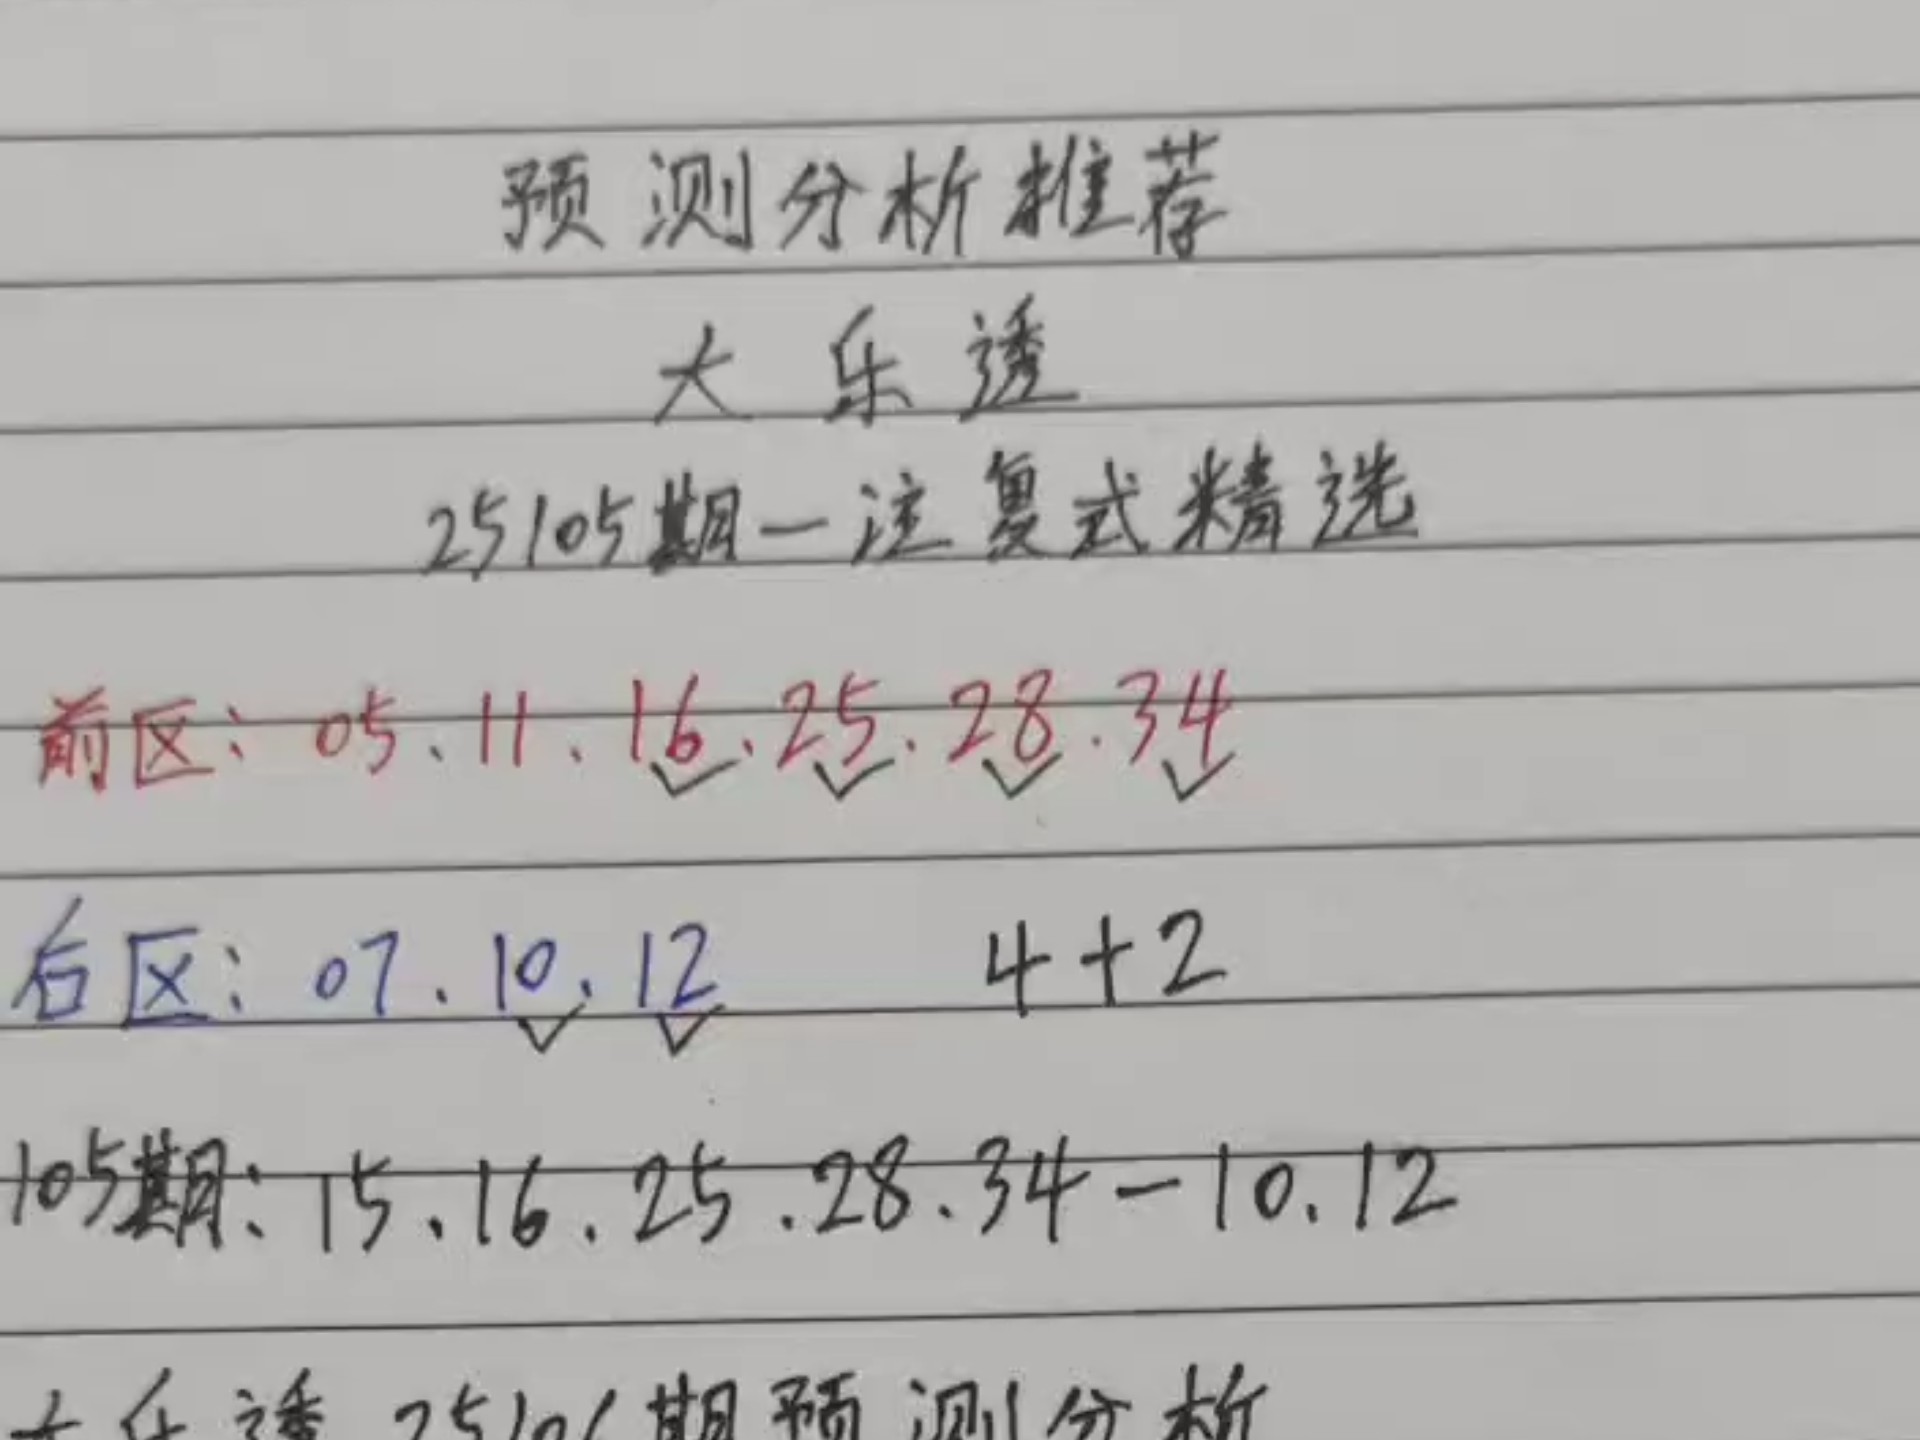 预测分析推荐
大乐透
25105期一注复式精选
前区：05.11.16.25.28.34
后区：07.10.12 4+2
105期：15.16.25.28.34-10.12
大乐透25106期预测分析